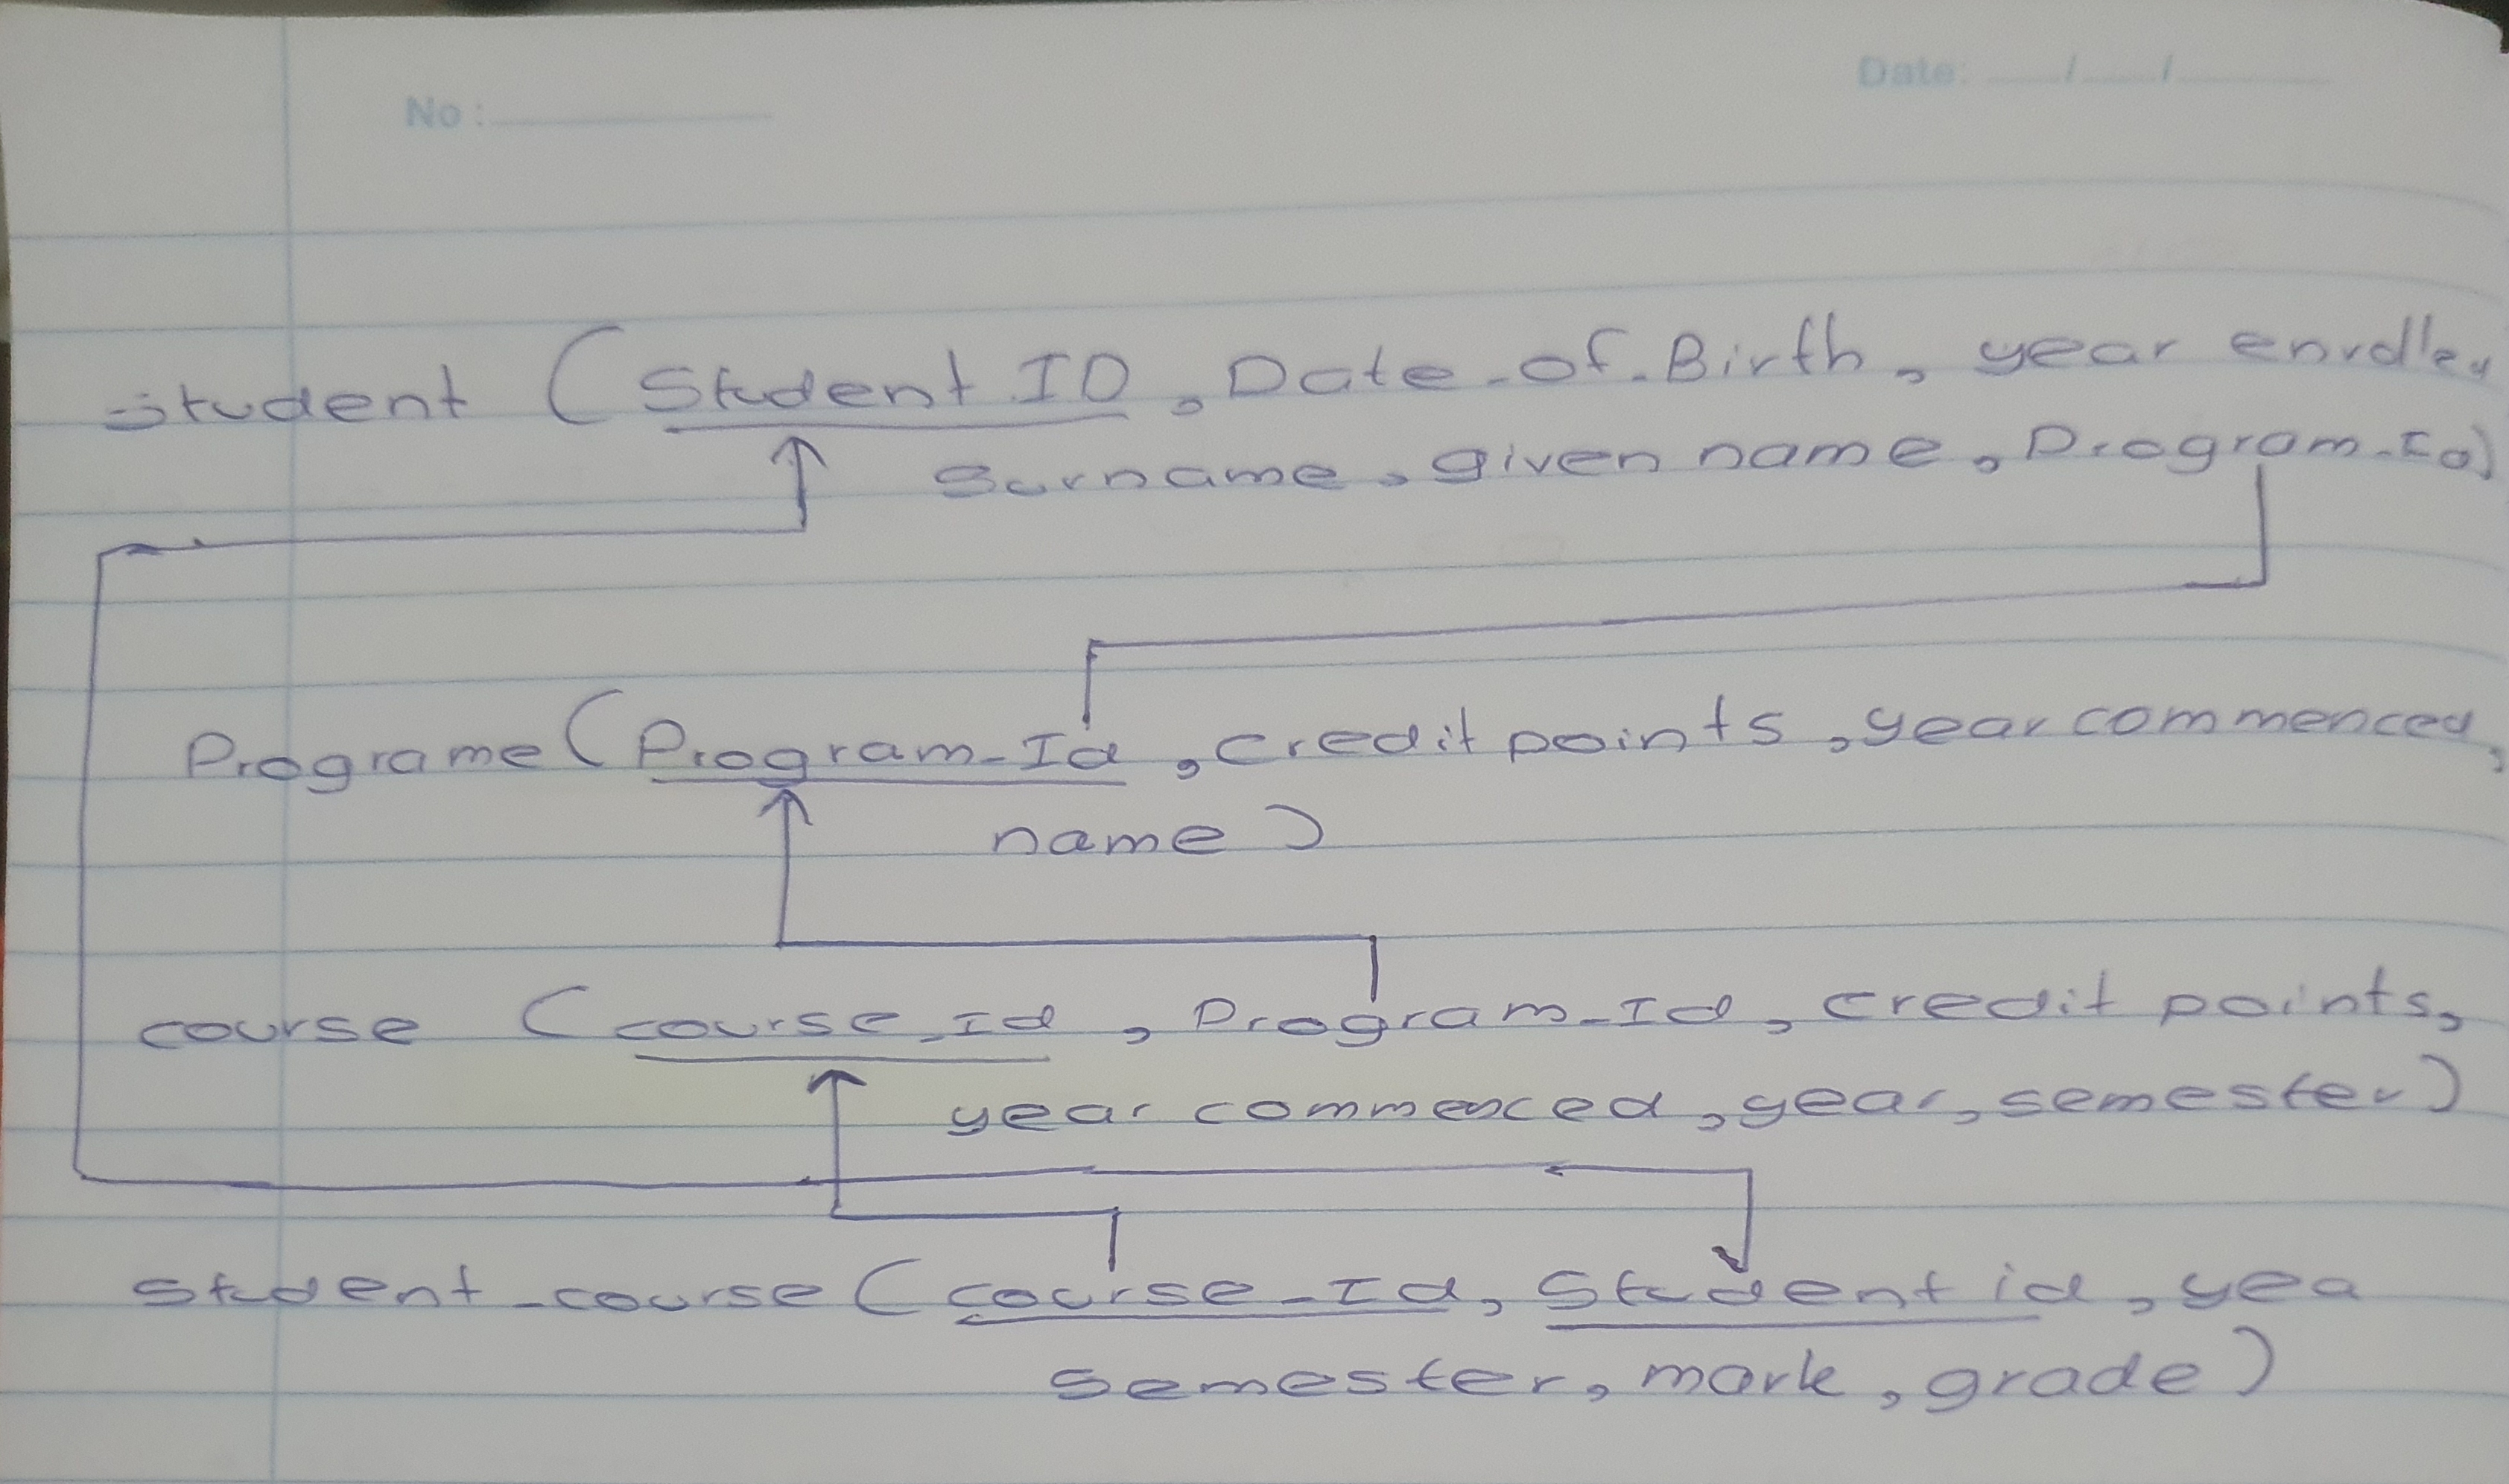 No :
Date: / /
Student (Student ID, Date-of-Birth, year enrolled
Surname, given name, Program-Id)
Programe (Program-Id, credit points, year commenced,
name)
course (course-id, Program-Id, credit points,
year commenced, year, semester)
Student-course (course-Id, Student id, yea
semester, mark, grade)